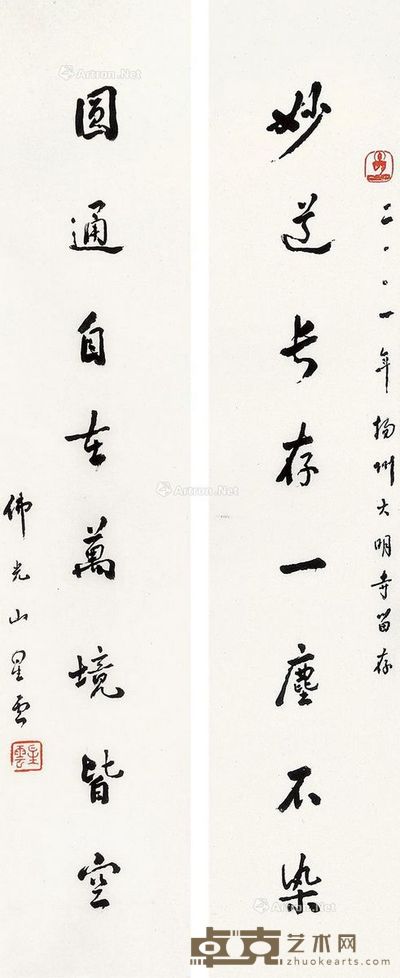 二〇〇一年扬州大明寺留存
妙道长存一塵不染
圓通自在萬境皆空
佛光山星雲
星雲
Artron.Net
Artron.Net
Artron.Net
卓克艺术网
zhuokearts.com